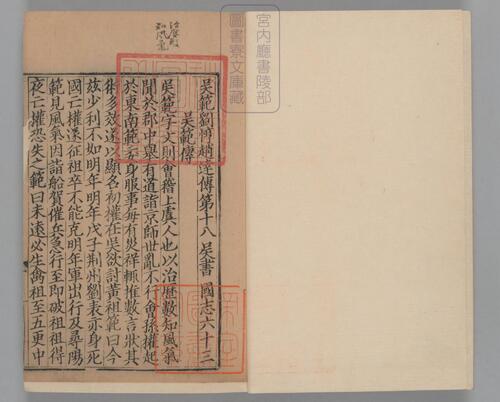 吳範劉惇趙達傳第十八 吳書 國志六十三
吳範傳
吳範字文則會稽上虞人也以治歷數知風氣
聞於郡中舉有道詣京師世亂不行會孫權起
於東南範委身服事每有災祥輒推數言狀其
術多效遂以顯名初權在吳欲討黃祖範曰今
茲少利不如明年明年戊子荊州劉表亦身死
國亡權遂征祖卒不能克明年軍出行及尋陽
範見風氣因詣船賀催兵急行至即破祖祖得
夜亡權恐失之範曰未遠必生禽祖至五更中
宮內廳書陵部
圖書寮文庫藏